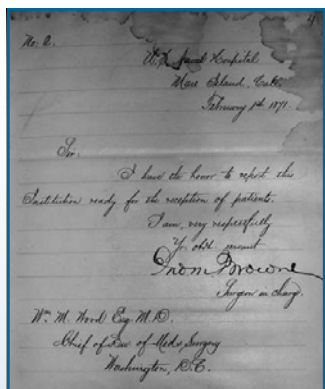 No. 2.
U.S. Naval Hospital
Mare Island, Cal.
February 1st 1871.
Sir:
I have the honor to report this
Institution ready for the reception of patients.
I am, very respectfully
Yr obdt servant
Jno M Browne
Surgeon in charge.
Wm. M. Wood Esq. M.D.
Chief of Bur of Med & Surgery
Washington, D.C.